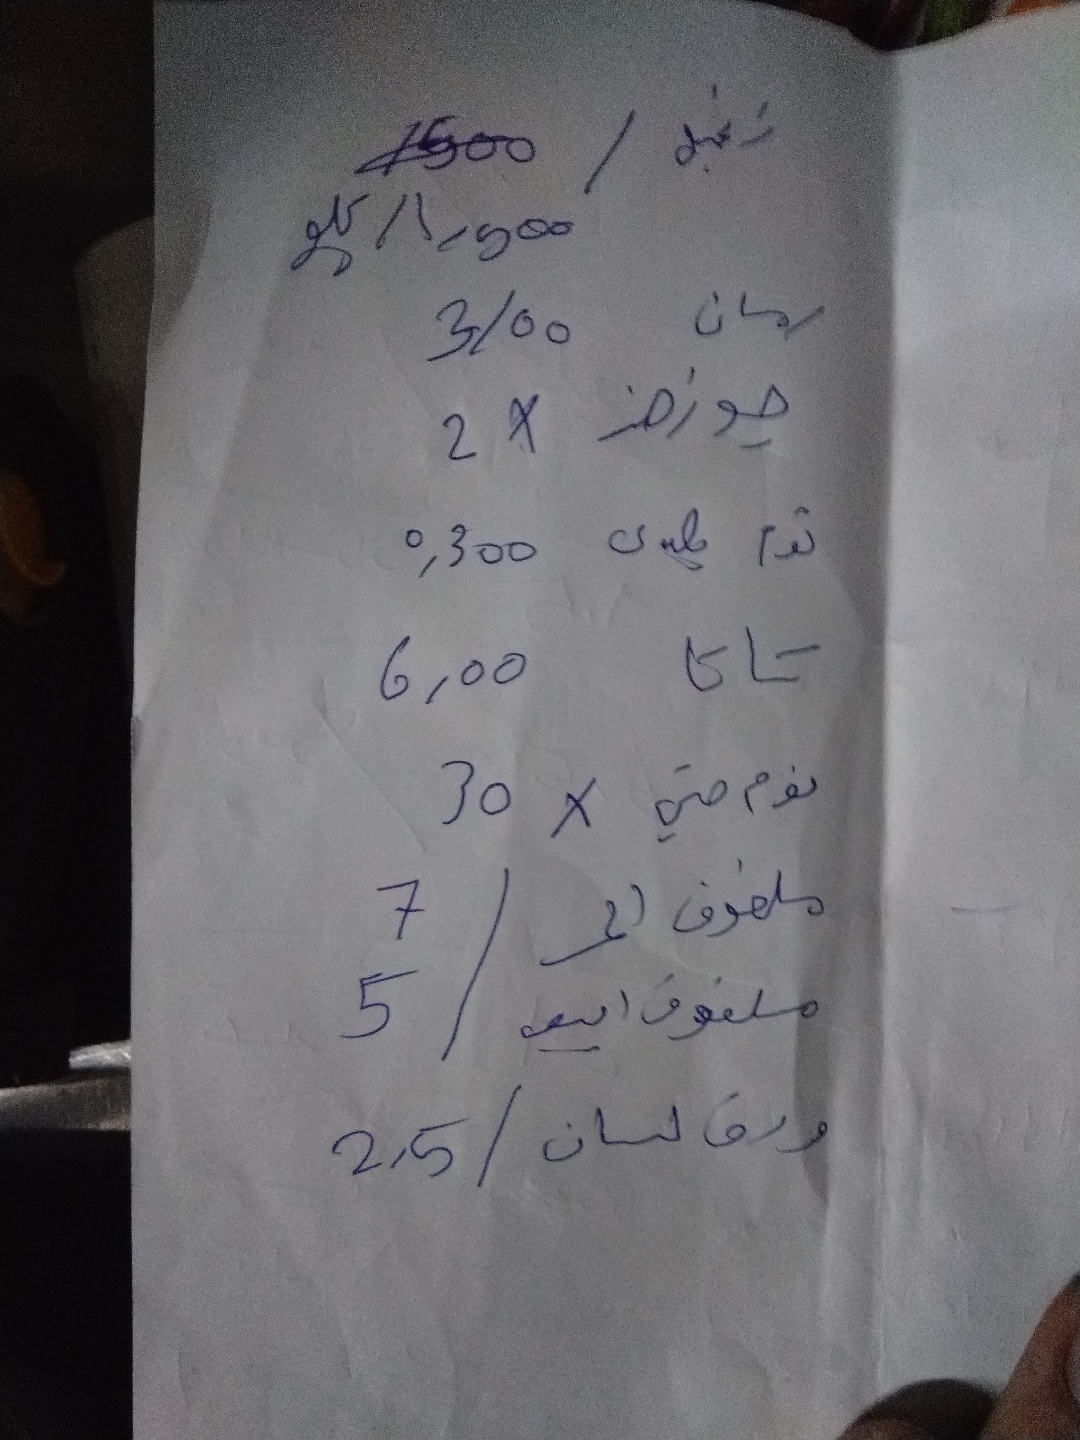 زنجبيل / 1500
1,500 / كيلو
رمان 3/00
جوز هند x 2
ثوم بلدي 0,300
بتاتا 6,00
ثوم صيني x 30
ملفوف احمر / 7
ملفوف ابيض / 5
ورق لسان / 2,5